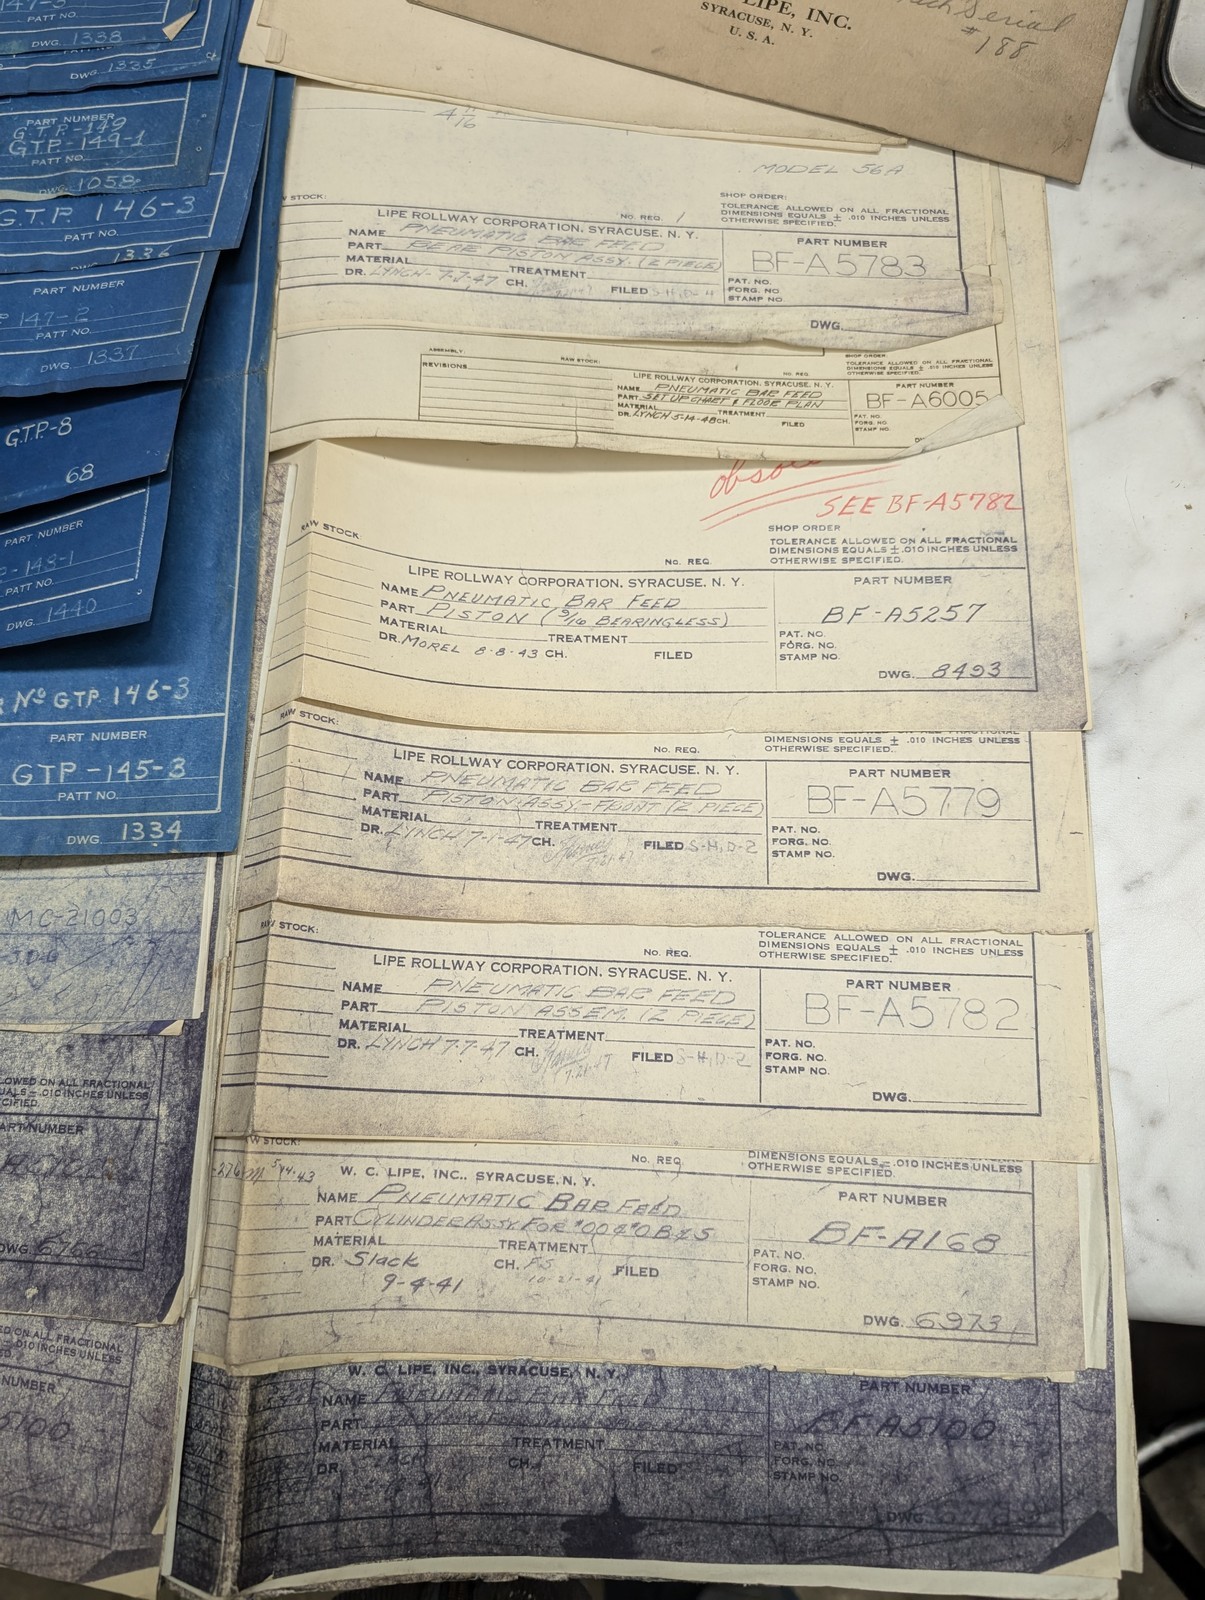 LIPE, INC.
SYRACUSE, N. Y.
U. S. A.
Serial
#188
DWG. 1338
PATT NO.
DWG 1335
PART NUMBER
G.T.P.-149
GTP-149-1
PATT NO.
DWG. 1058
G.T.P. 146-3
PATT NO.
1336
PART NUMBER
147-2
PATT NO.
DWG. 1337
G.T.P.-8
68
PART NUMBER
PATT NO.
DWG. 1440
Nº G.T.P. 146-3
PART NUMBER
GTP-145-3
PATT NO.
DWG. 1334
MC-21003
4 11/16
MODEL 56A
STOCK:
SHOP ORDER:
TOLERANCE ALLOWED ON ALL FRACTIONAL
DIMENSIONS EQUALS ± .010 INCHES UNLESS
OTHERWISE SPECIFIED.
No. REQ. 1
LIPE ROLLWAY CORPORATION, SYRACUSE, N. Y.
NAME PNEUMATIC BAR FEED
PART REAR PISTON ASSY. (2 PIECE)
MATERIAL TREATMENT
DR. LYNCH-7-7-47 CH. FILED S-H, D-4
PART NUMBER
BF-A5783
PAT. NO.
FORG. NO.
STAMP NO.
DWG.
ASSEMBLY:
RAW STOCK:
REVISIONS
No. REQ.
SHOP ORDER:
TOLERANCE ALLOWED ON ALL FRACTIONAL
DIMENSIONS EQUALS ± .010 INCHES UNLESS
OTHERWISE SPECIFIED.
LIPE ROLLWAY CORPORATION, SYRACUSE, N. Y.
NAME PNEUMATIC BAR FEED
PART SET UP CHART & FLOOR PLAN
MATERIAL TREATMENT
DR. LYNCH 5-14-48 CH. FILED
PART NUMBER
BF-A6005
PAT. NO.
FORG. NO.
STAMP NO.
SEE BF-A5782
RAW STOCK
SHOP ORDER
TOLERANCE ALLOWED ON ALL FRACTIONAL
DIMENSIONS EQUALS ± .010 INCHES UNLESS
OTHERWISE SPECIFIED.
No. REQ.
LIPE ROLLWAY CORPORATION, SYRACUSE, N. Y.
NAME PNEUMATIC BAR FEED
PART PISTON (9/16 BEARINGLESS)
MATERIAL TREATMENT
DR. MOREL 8-8-43 CH. FILED
PART NUMBER
BF-A5257
PAT. NO.
FORG. NO.
STAMP NO.
DWG. 8493
RAW STOCK:
No. REQ.
DIMENSIONS EQUALS ± .010 INCHES UNLESS
OTHERWISE SPECIFIED.
LIPE ROLLWAY CORPORATION, SYRACUSE, N. Y.
NAME PNEUMATIC BAR FEED
PART PISTON ASSY-FLOAT (2 PIECE)
MATERIAL TREATMENT
DR. LYNCH 7-1-47 CH. 7-21-47 FILED S-H, D-2
PART NUMBER
BF-A5779
PAT. NO.
FORG. NO.
STAMP NO.
DWG.
RAW STOCK:
No. REQ.
TOLERANCE ALLOWED ON ALL FRACTIONAL
DIMENSIONS EQUALS ± .010 INCHES UNLESS
OTHERWISE SPECIFIED.
LIPE ROLLWAY CORPORATION, SYRACUSE, N. Y.
NAME PNEUMATIC BAR FEED
PART PISTON ASSEM. (2 PIECE)
MATERIAL TREATMENT
DR. LYNCH 7-7-47 CH. 7-21-47 FILED S-H, D-2
PART NUMBER
BF-A5782
PAT. NO.
FORG. NO.
STAMP NO.
DWG.
STOCK:
No. REQ.
DIMENSIONS EQUALS ± .010 INCHES UNLESS
OTHERWISE SPECIFIED.
W. C. LIPE, INC., SYRACUSE, N. Y.
NAME PNEUMATIC BAR FEED
PART CYLINDER ASSY FOR #00 & #0 B & S
MATERIAL TREATMENT
DR. Slack CH. FILED
9-4-41 10-21-41
PART NUMBER
BF-A168
PAT. NO.
FORG. NO.
STAMP NO.
DWG. 6973
W. C. LIPE, INC., SYRACUSE, N. Y.
NAME PNEUMATIC BAR FEED
PART
MATERIAL TREATMENT
DR. CH. FILED
PART NUMBER
BF-A5100
PAT. NO.
FORG. NO.
STAMP NO.
DWG.